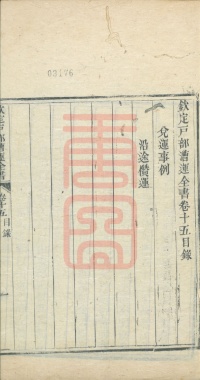 03176
欽定戶部漕運全書卷十五目錄
兌運事例
沿途儹運
欽定戶部漕運全書
卷十五目錄